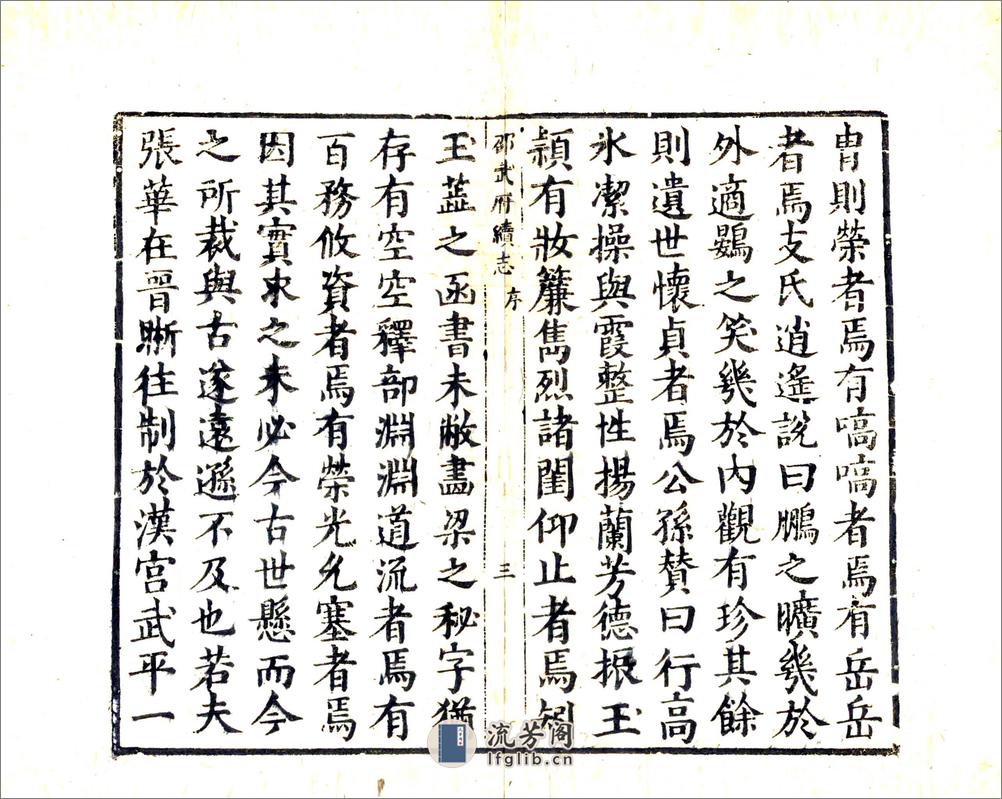 胄則榮者焉有嗃嗃者焉有岳岳
者焉支氏逍遙說曰鵬之曠㡬於
外適鷃之笑㡬於內觀有珍其餘
則遺世懷貞者焉公孫贊曰行高
氷潔操與霞整性揚蘭芳德振玉
穎有妝簾雋烈諸閨仰止者焉
邵武府續志 序 三
玉蓝之函書未敝盡梁之秘字猶
存有空空釋部淵淵道流者焉有
百務攸資者焉有榮光允塞者焉
因其實求之未必今古世懸而今
之所裁與古遂遠遜不及也若夫
張華在晉晰往制於漢宮武平一
流芳阁
lfglib.cn